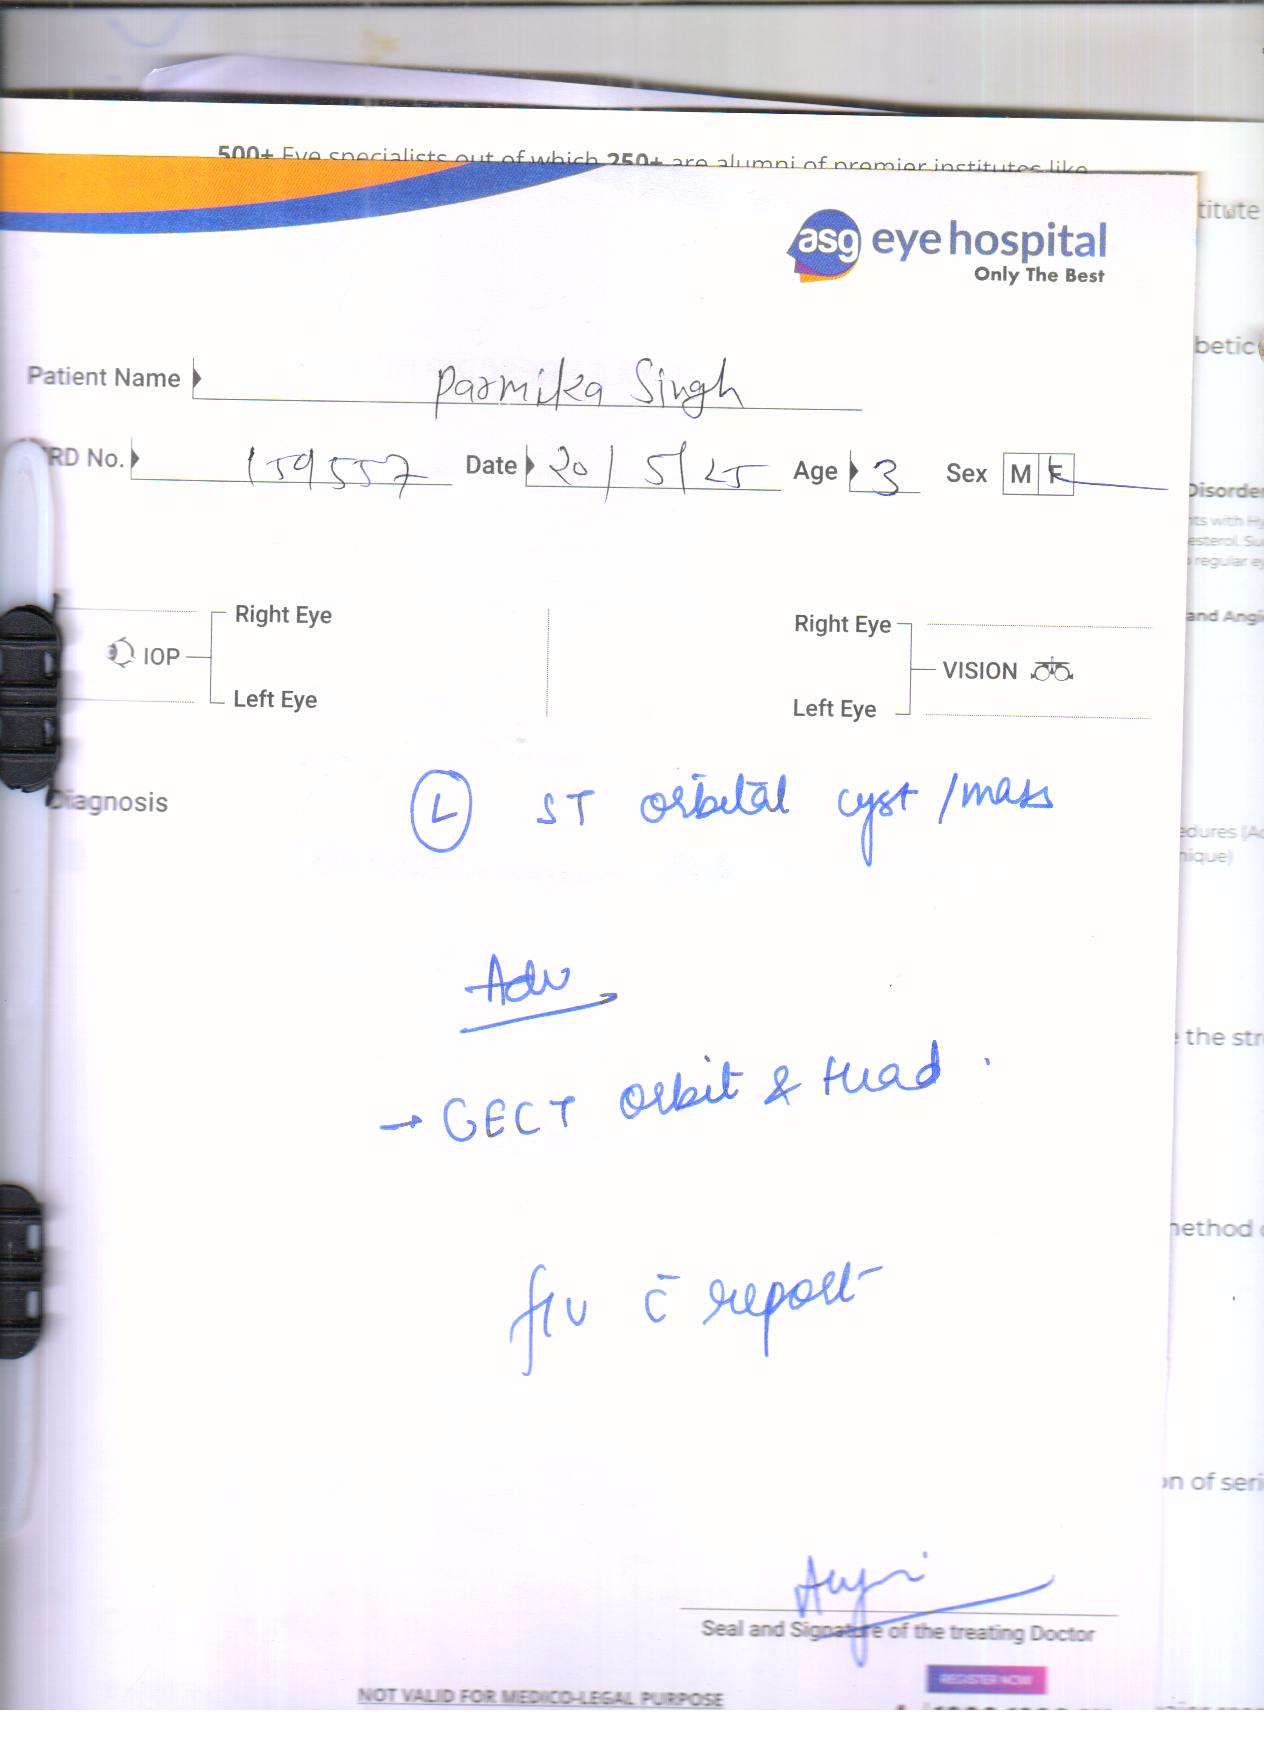 500+ Eye specialists out of which 250+ are alumni of premier institutes like
titute
asg eye hospital
Only The Best
betic
Patient Name Parmika Singh
RD No. 159557 Date 20/5/25 Age 3 Sex M F
Disorde
nts with Hy
esterol. Su
regular ey
and Angi
IOP Right Eye
Left Eye
Right Eye VISION
Left Eye
Diagnosis (L) ST orbital cyst / mass
edures (Ac
nique)
Adv
the str
→ CECT orbit & Head
nethod
f/u c̄ report
on of seri
Seal and Signature of the treating Doctor
REGISTER NOW
NOT VALID FOR MEDICO-LEGAL PURPOSE